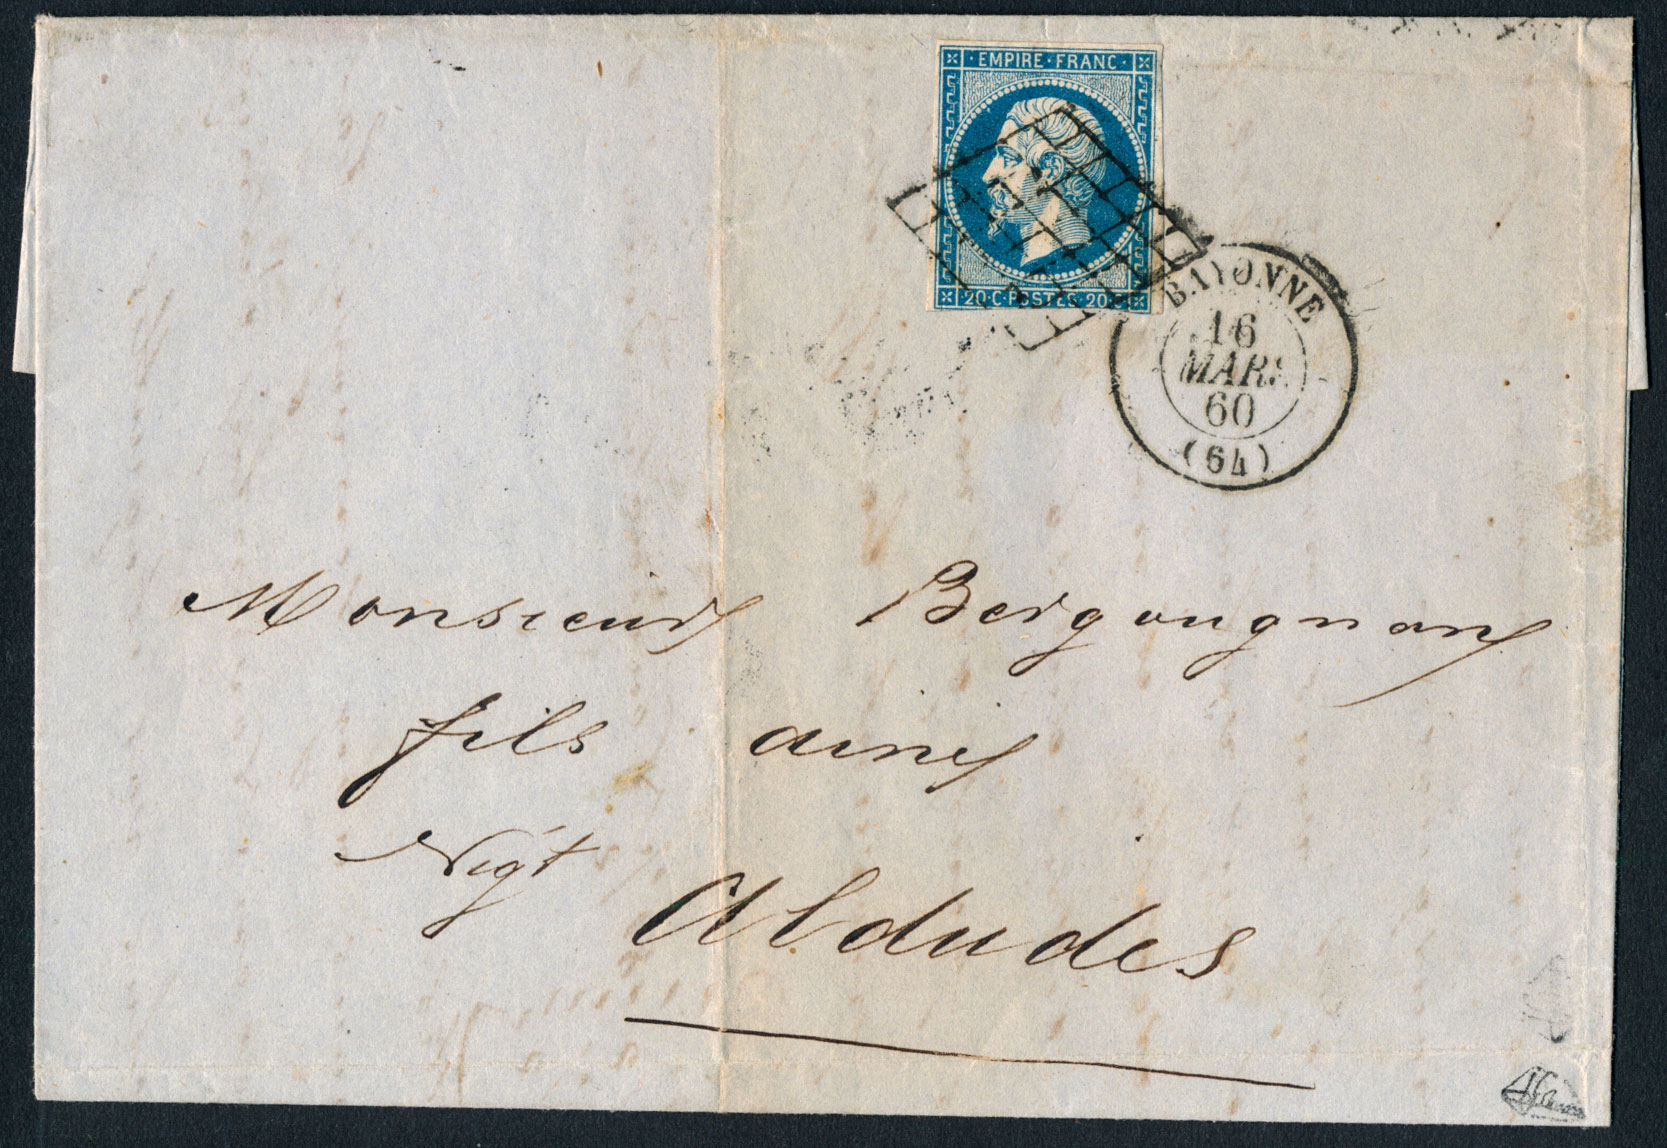 EMPIRE · FRANC ·
20 · C · POSTES · 20 · C
BAYONNE
16
MARS
60
(64)
Monsieur Bergougnan
fils ainé
Négt
Aldudes